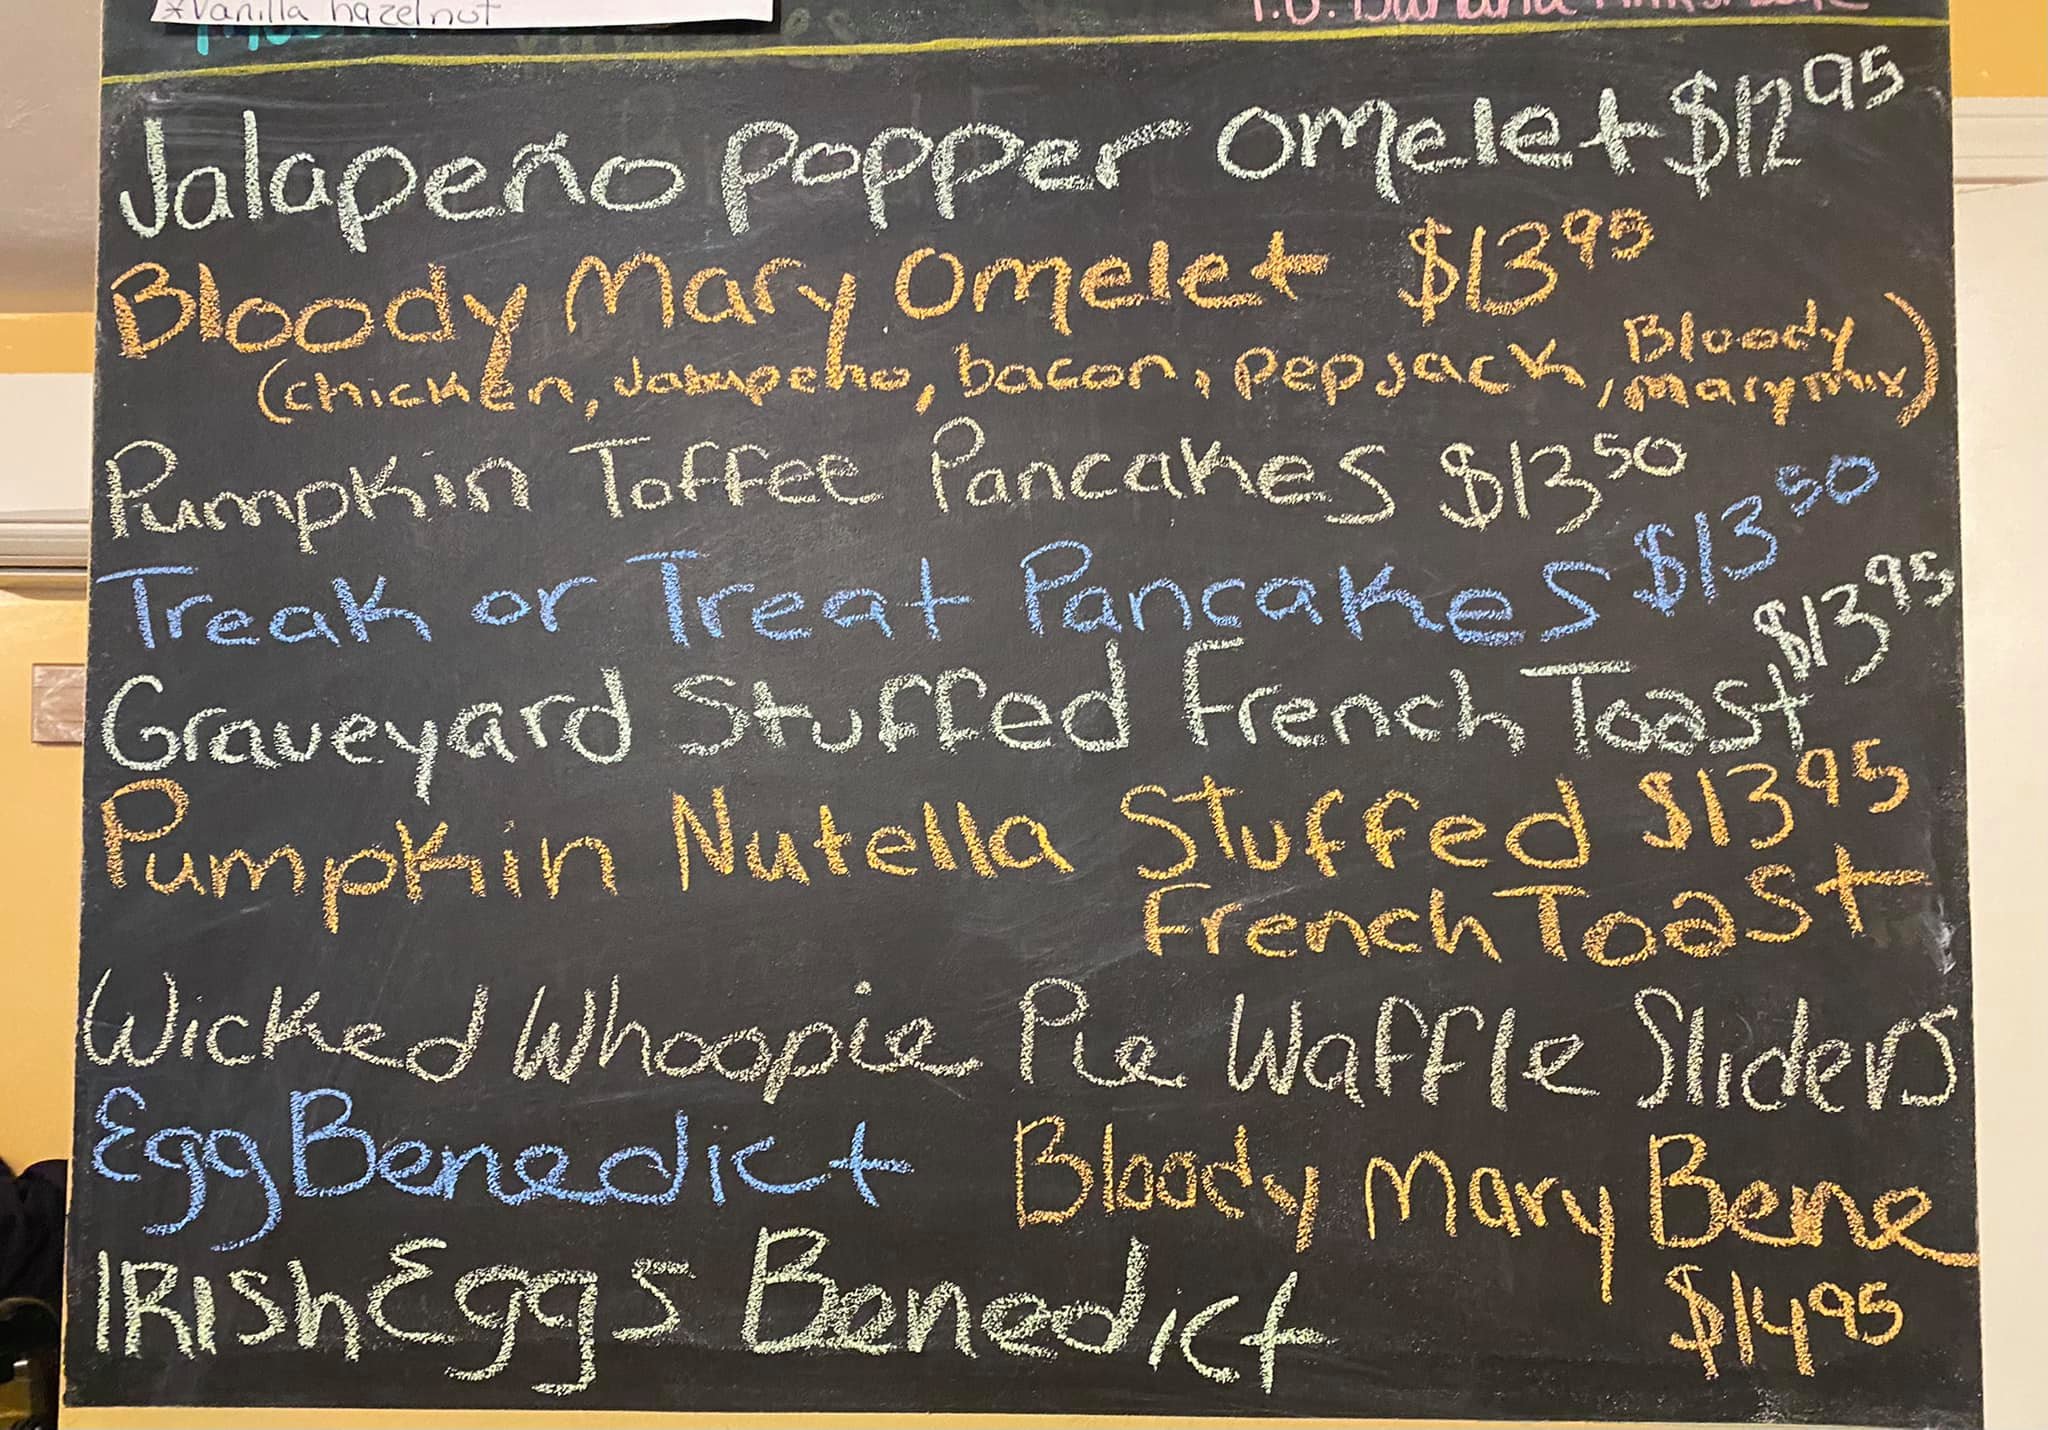 *Vanilla hazelnut
Jalapeño Popper Omelet $12.95
Bloody Mary Omelet $13.95
(chicken, Jalapeño, bacon, pepjack, Bloody Mary mix)
Pumpkin Toffee Pancakes $13.50
Treak or Treat Pancakes $13.50
Graveyard Stuffed French Toast $13.95
Pumpkin Nutella Stuffed $13.95
French Toast
Wicked Whoopie Pie Waffle Sliders
Egg Benedict Bloody Mary Bene
IRISh Eggs Benedict $14.95